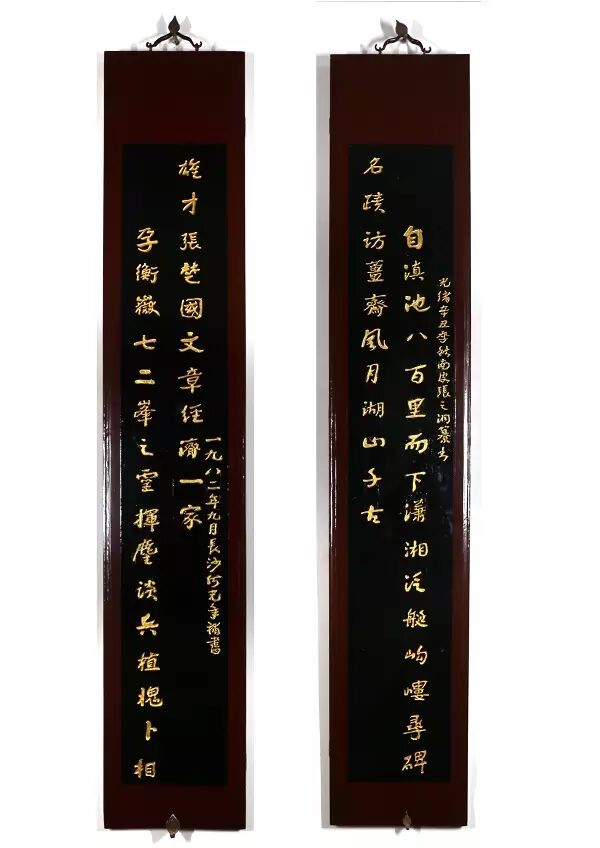 自滇池八百里而下瀟湘泛艇岣嶁尋碑
名蹟访薑齋風月湖山千古
光緒辛丑季秋南皮張之洞纂书
孕衡嶽七二峯之靈揮麈谈兵植槐卜相
雄才張楚國文章经濟一家
一九八二年九月長沙何光年補書